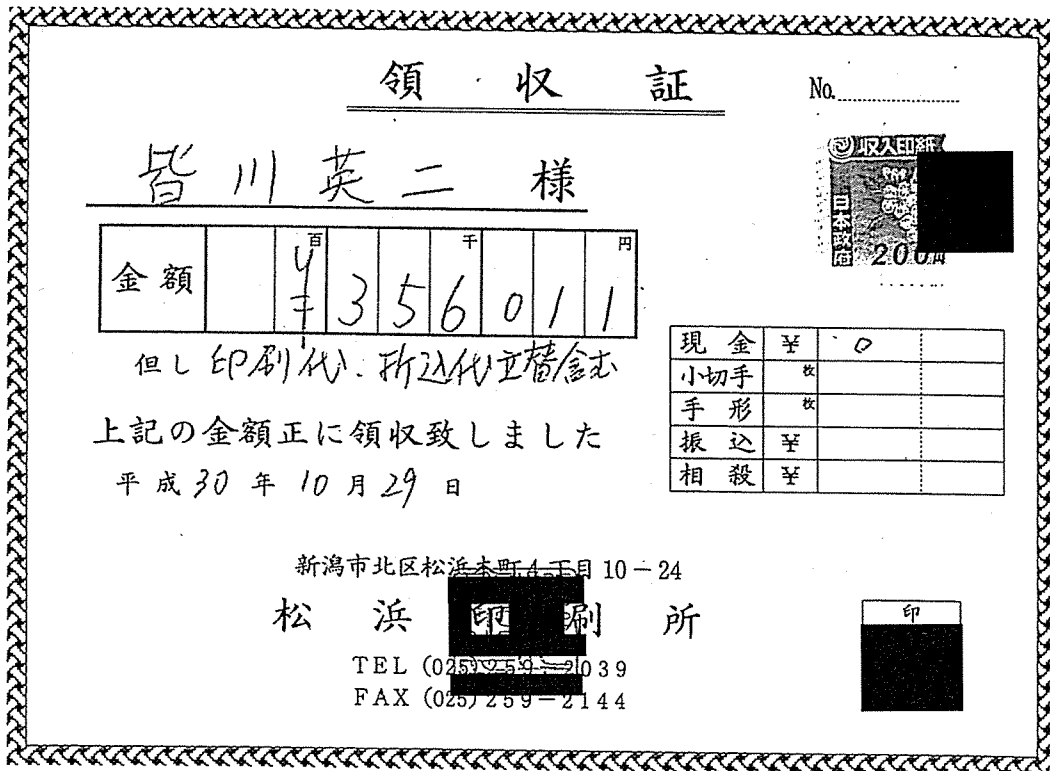 領収証
No.
収入印紙
日本政府
200円
皆川英二 様
金額 百 千 円
¥356011
但し 印刷代、折込代立替含む
上記の金額正に領収致しました
平成30年10月29日
現金 ¥ 0
小切手 枚
手形 枚
振込 ¥
相殺 ¥
新潟市北区松浜本町4丁目10-24
松浜印刷所
TEL (025) 259-2039
FAX (025) 259-2144
印